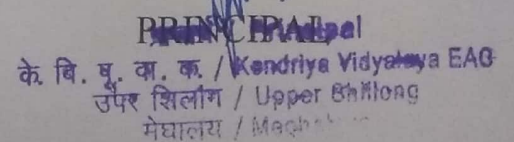 PRINCIPAL
के. बि. पू. वा. क. / Kendriya Vidyalaya EAC
उपर शिलोंग / Upper Shillong
मेघालय /